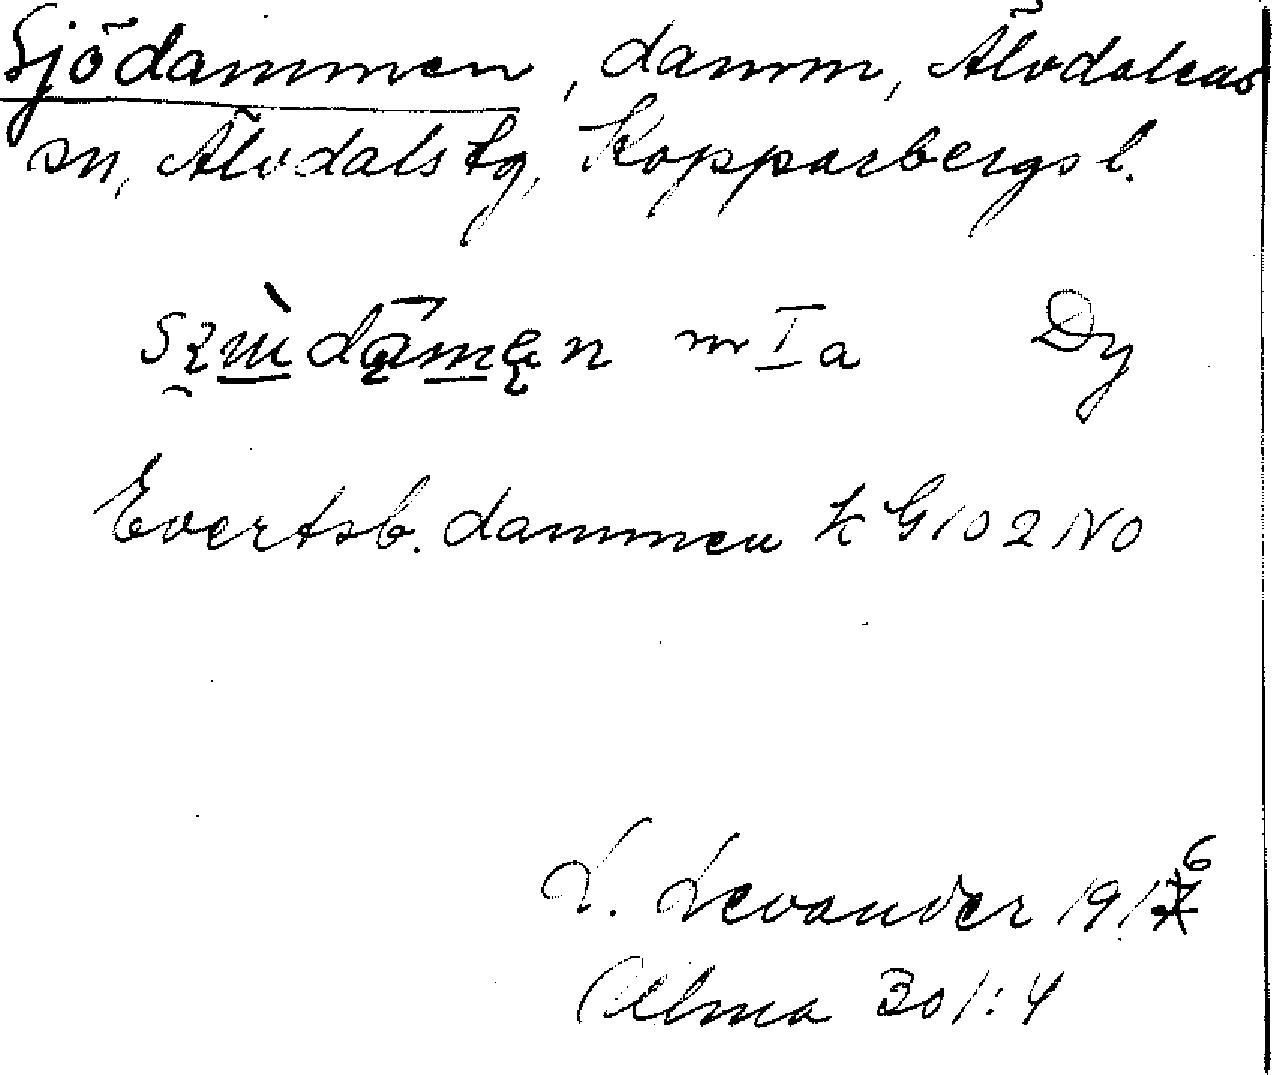 Sjödammen, damm, Älvdalens
sn, Älvdals tg, Kopparbergs l.
m I a Dy
Evertsb. dammen k G 102 NO
L. Levander 1916
Ulma 301:4